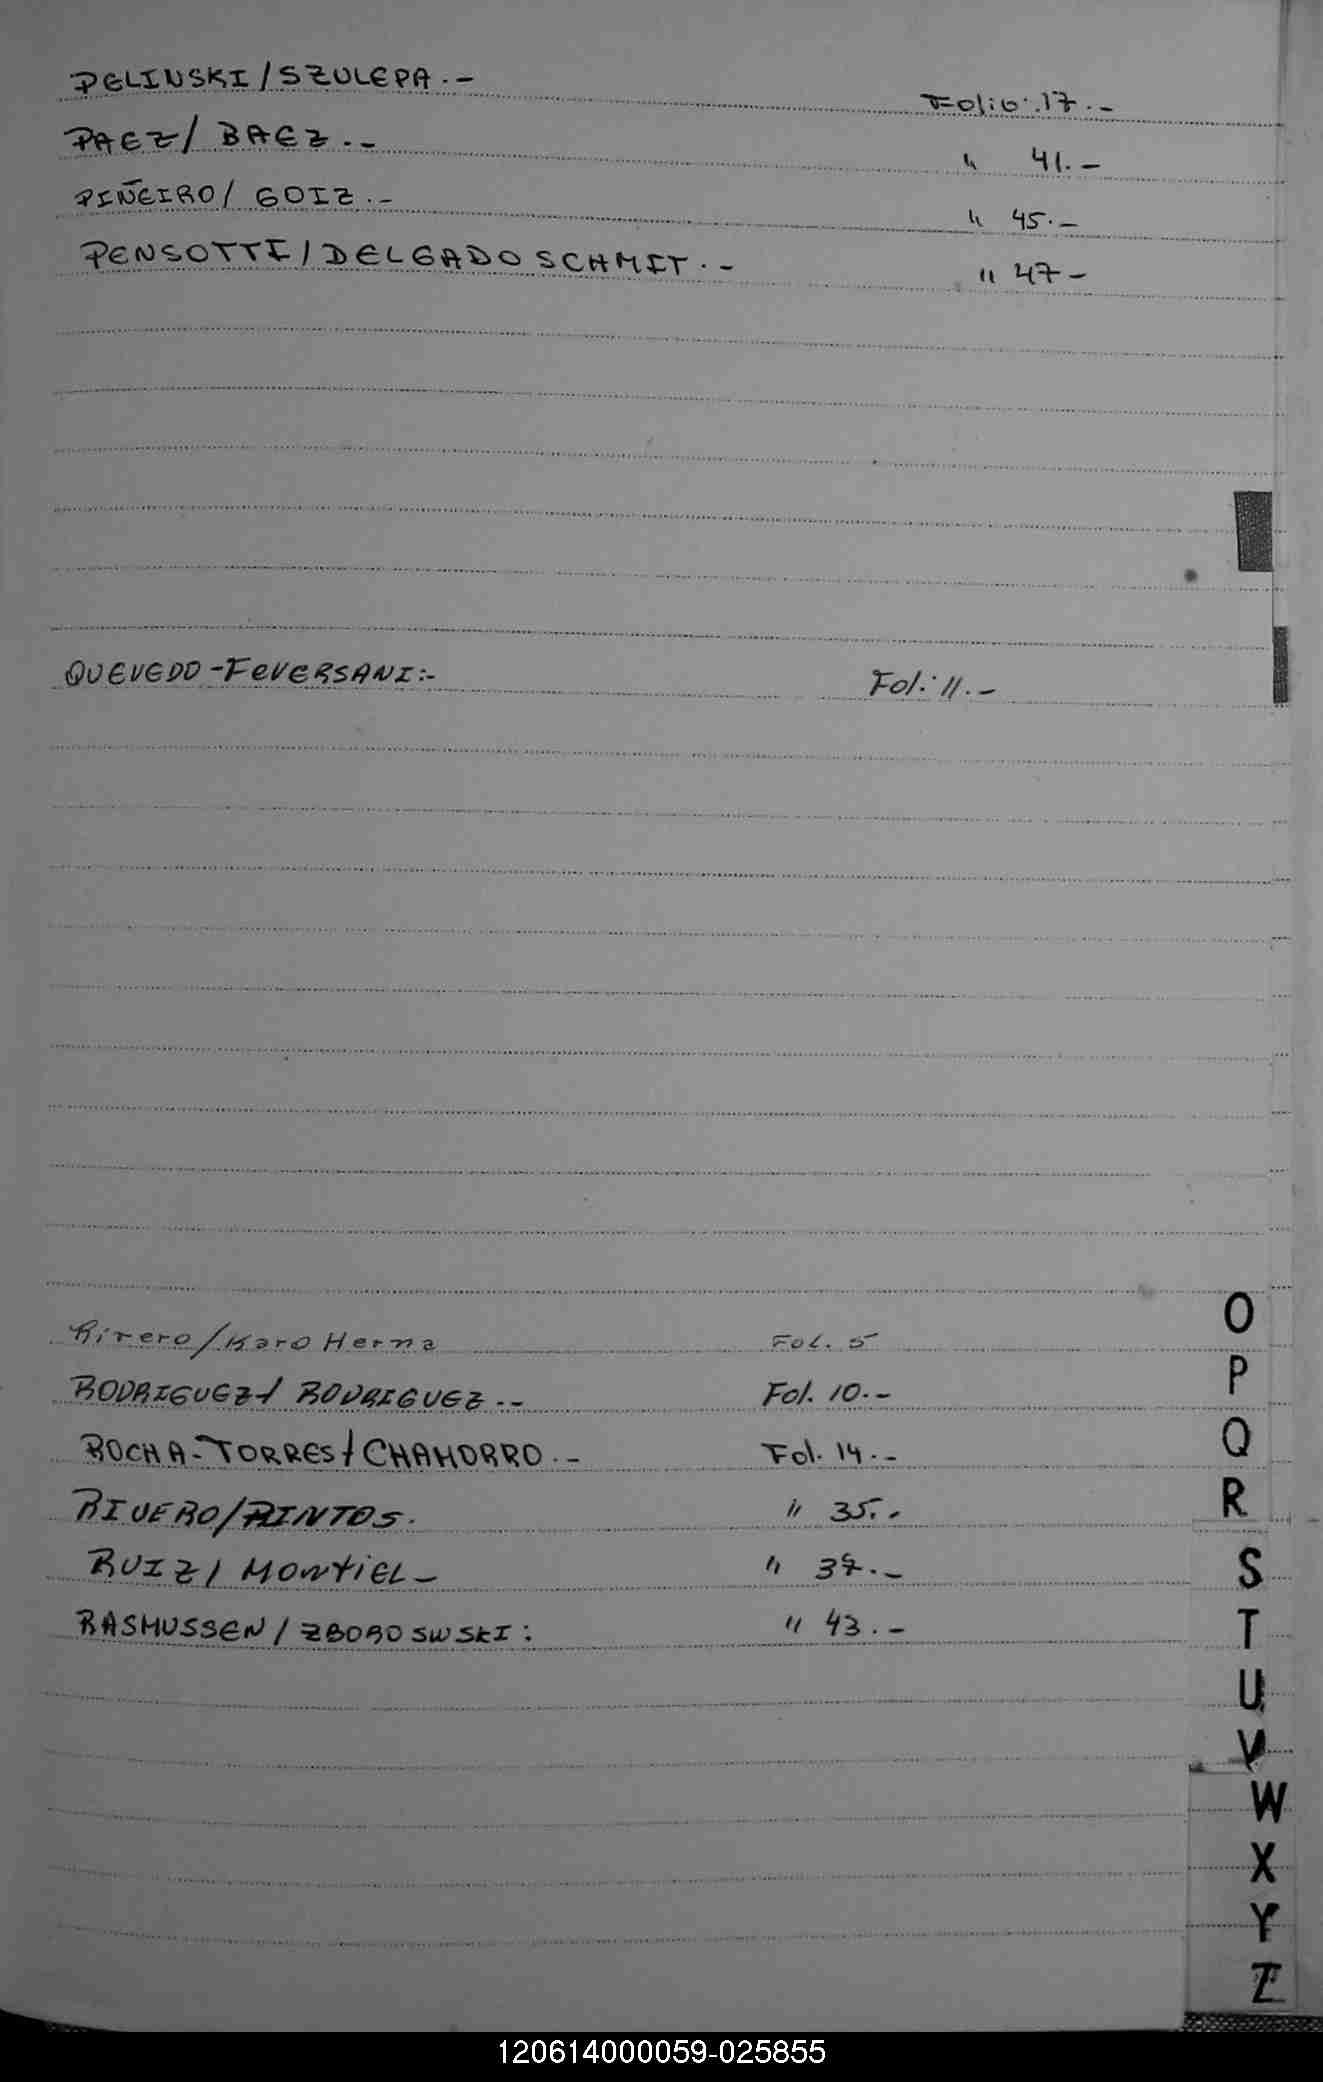 PELINSKI/SZULEPA.- Folio:17.-
PAEZ/BAEZ.- " 41.-
PIÑEIRO/GOIZ.- " 45.-
PENSOTTI/DELGADO SCHMIT.- " 47-
QUEVEDO-FEVERSANI:- Fol:11.-
Rivero/Karo Herna Fol. 5
RODRIGUEZ/RODRIGUEZ.- Fol. 10.-
ROCHA-TORRES/CHAMORRO.- Fol. 14.-
RIVERO/PINTOS. " 35.-
RUIZ/MONTIEL- " 37.-
RASMUSSEN/ZBOROSWSKI: " 43.-
O
P
Q
R
S
T
U
V
W
X
Y
Z
120614000059-025855